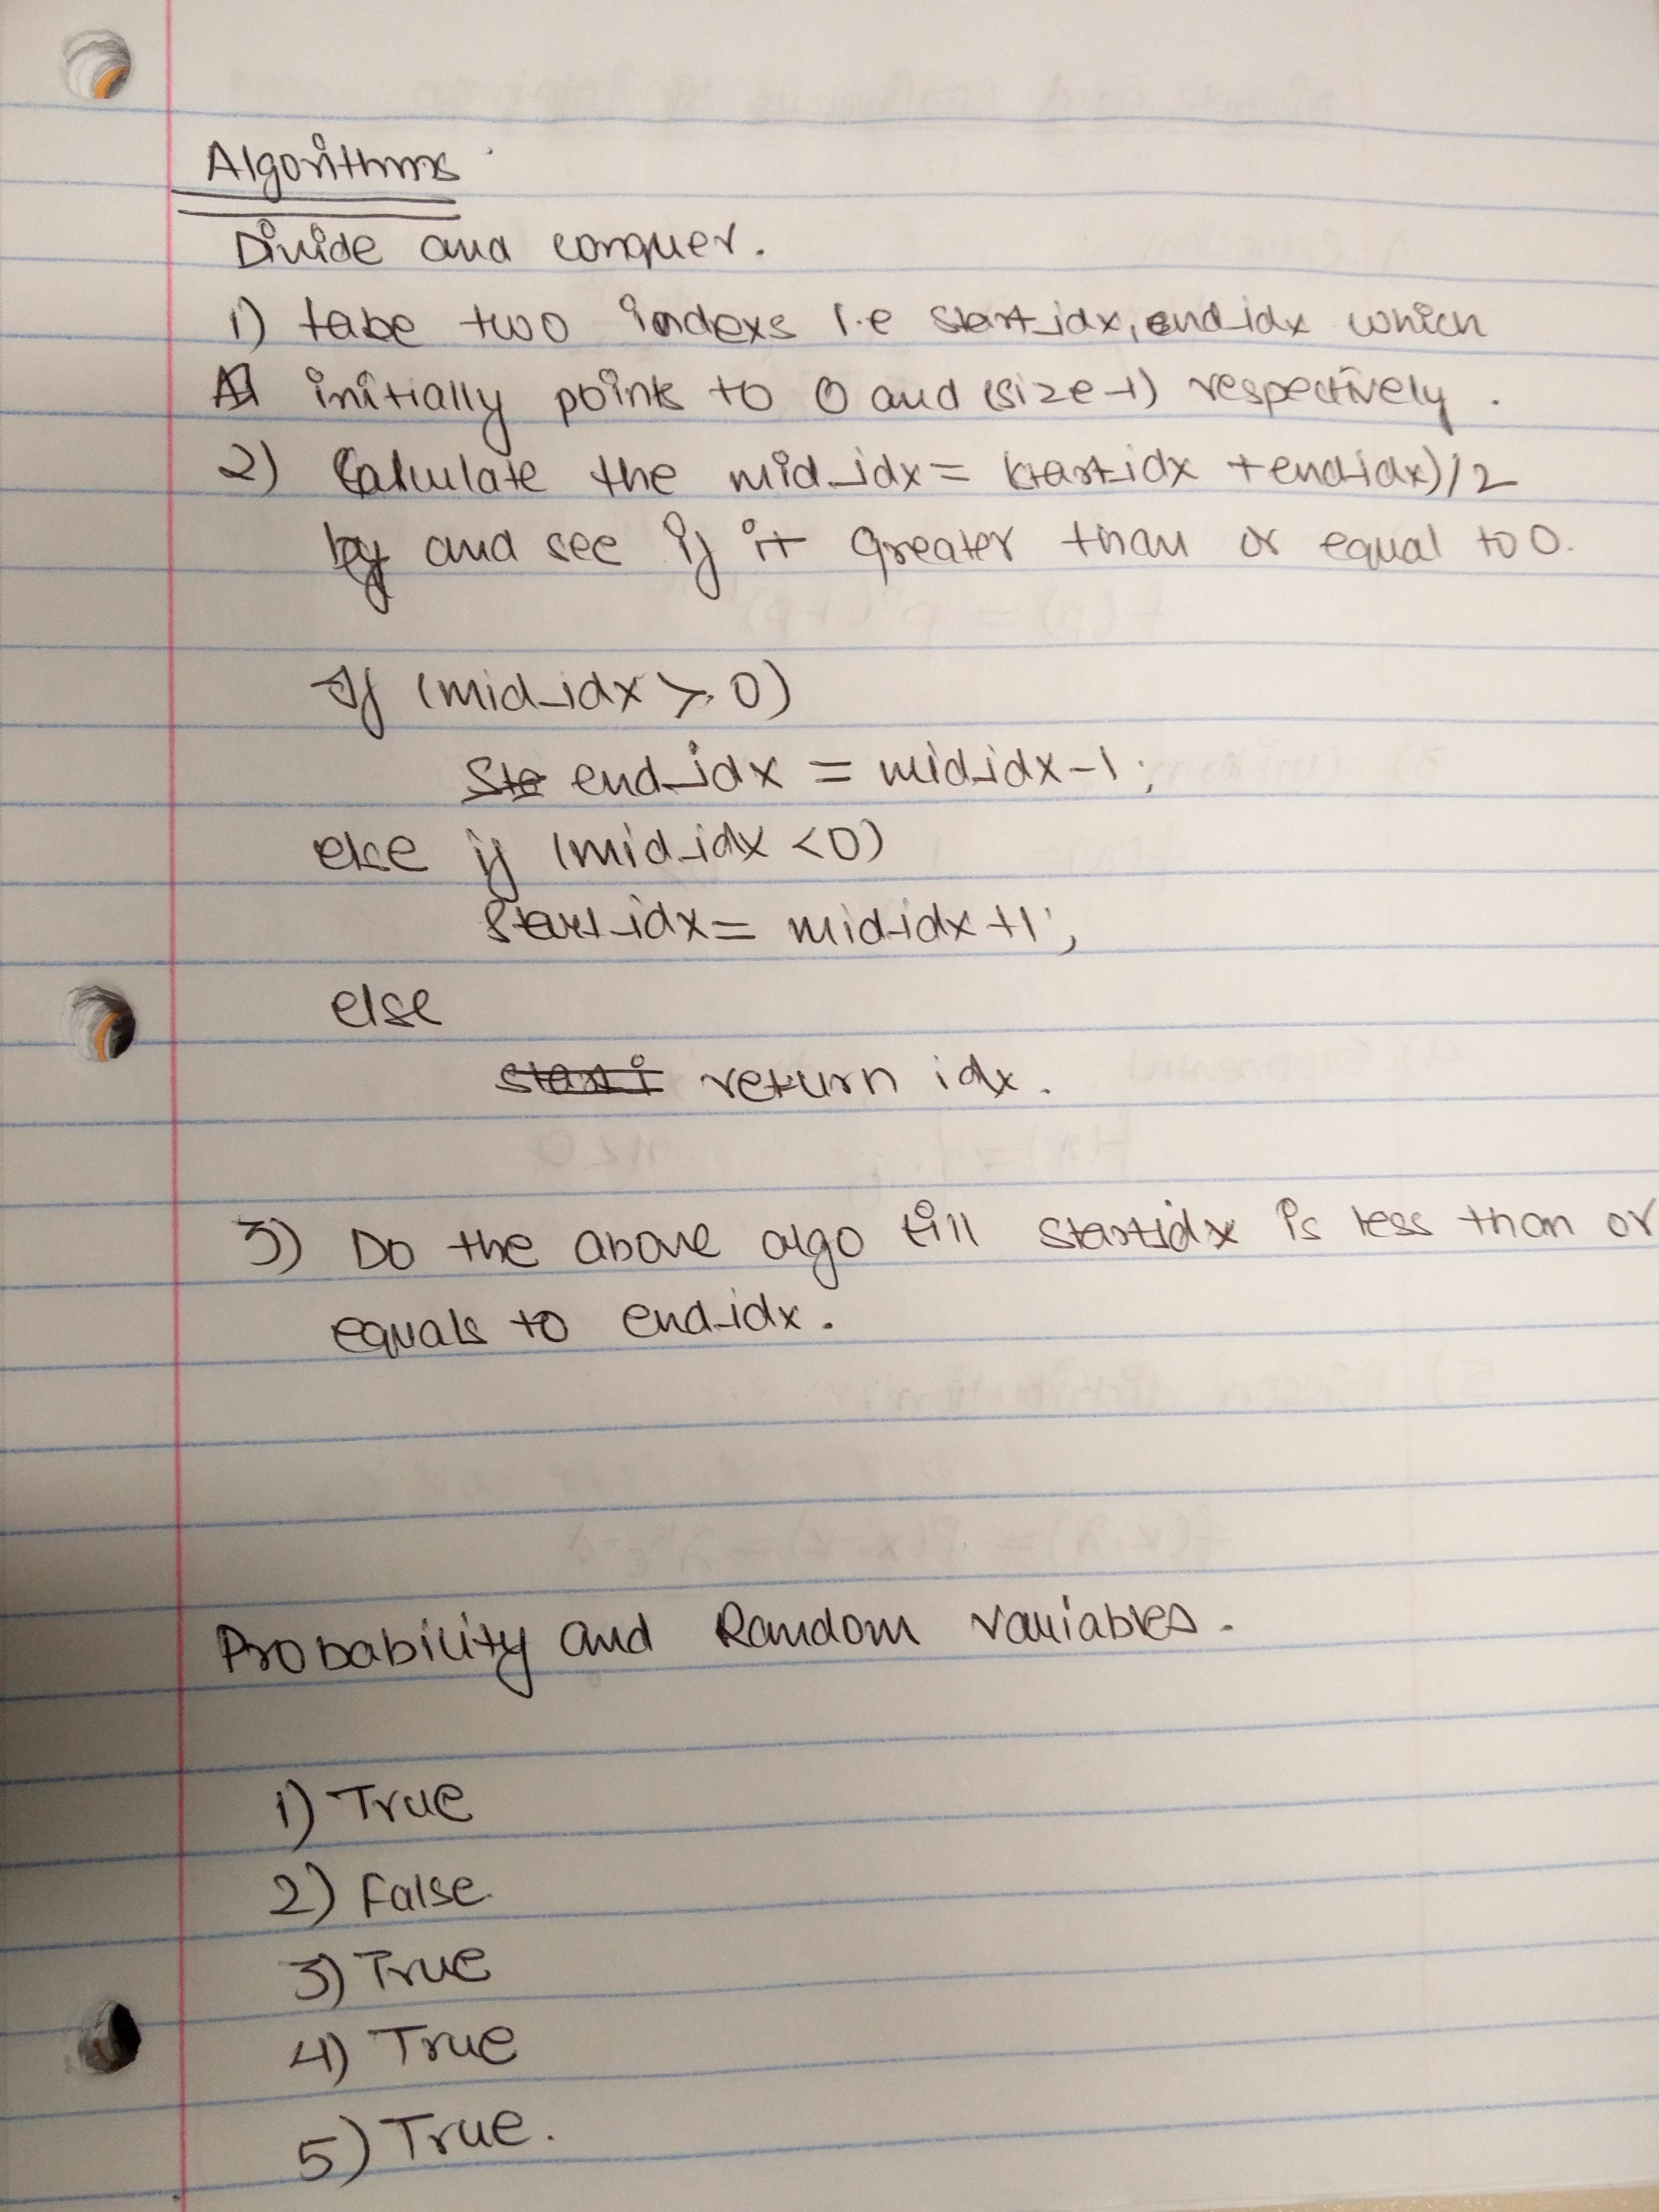 Algorithms
Divide and conquer.
1) take two indexs i.e start_idx, end_idx which
initially points to 0 and (size-1) respectively.
2) Calculate the mid_idx = (start_idx + end_idx)/2
by and see if it greater than or equal to 0.
If (mid_idx > 0)
Sta end_idx = mid_idx-1;
else if (mid_idx <0)
start_idx = mid_idx +1;
else
start i return idx.
3) Do the above algo till start_idx is less than or
equals to end_idx.
Probability and Random variables.
1) True
2) False.
3) True
4) True
5) True.